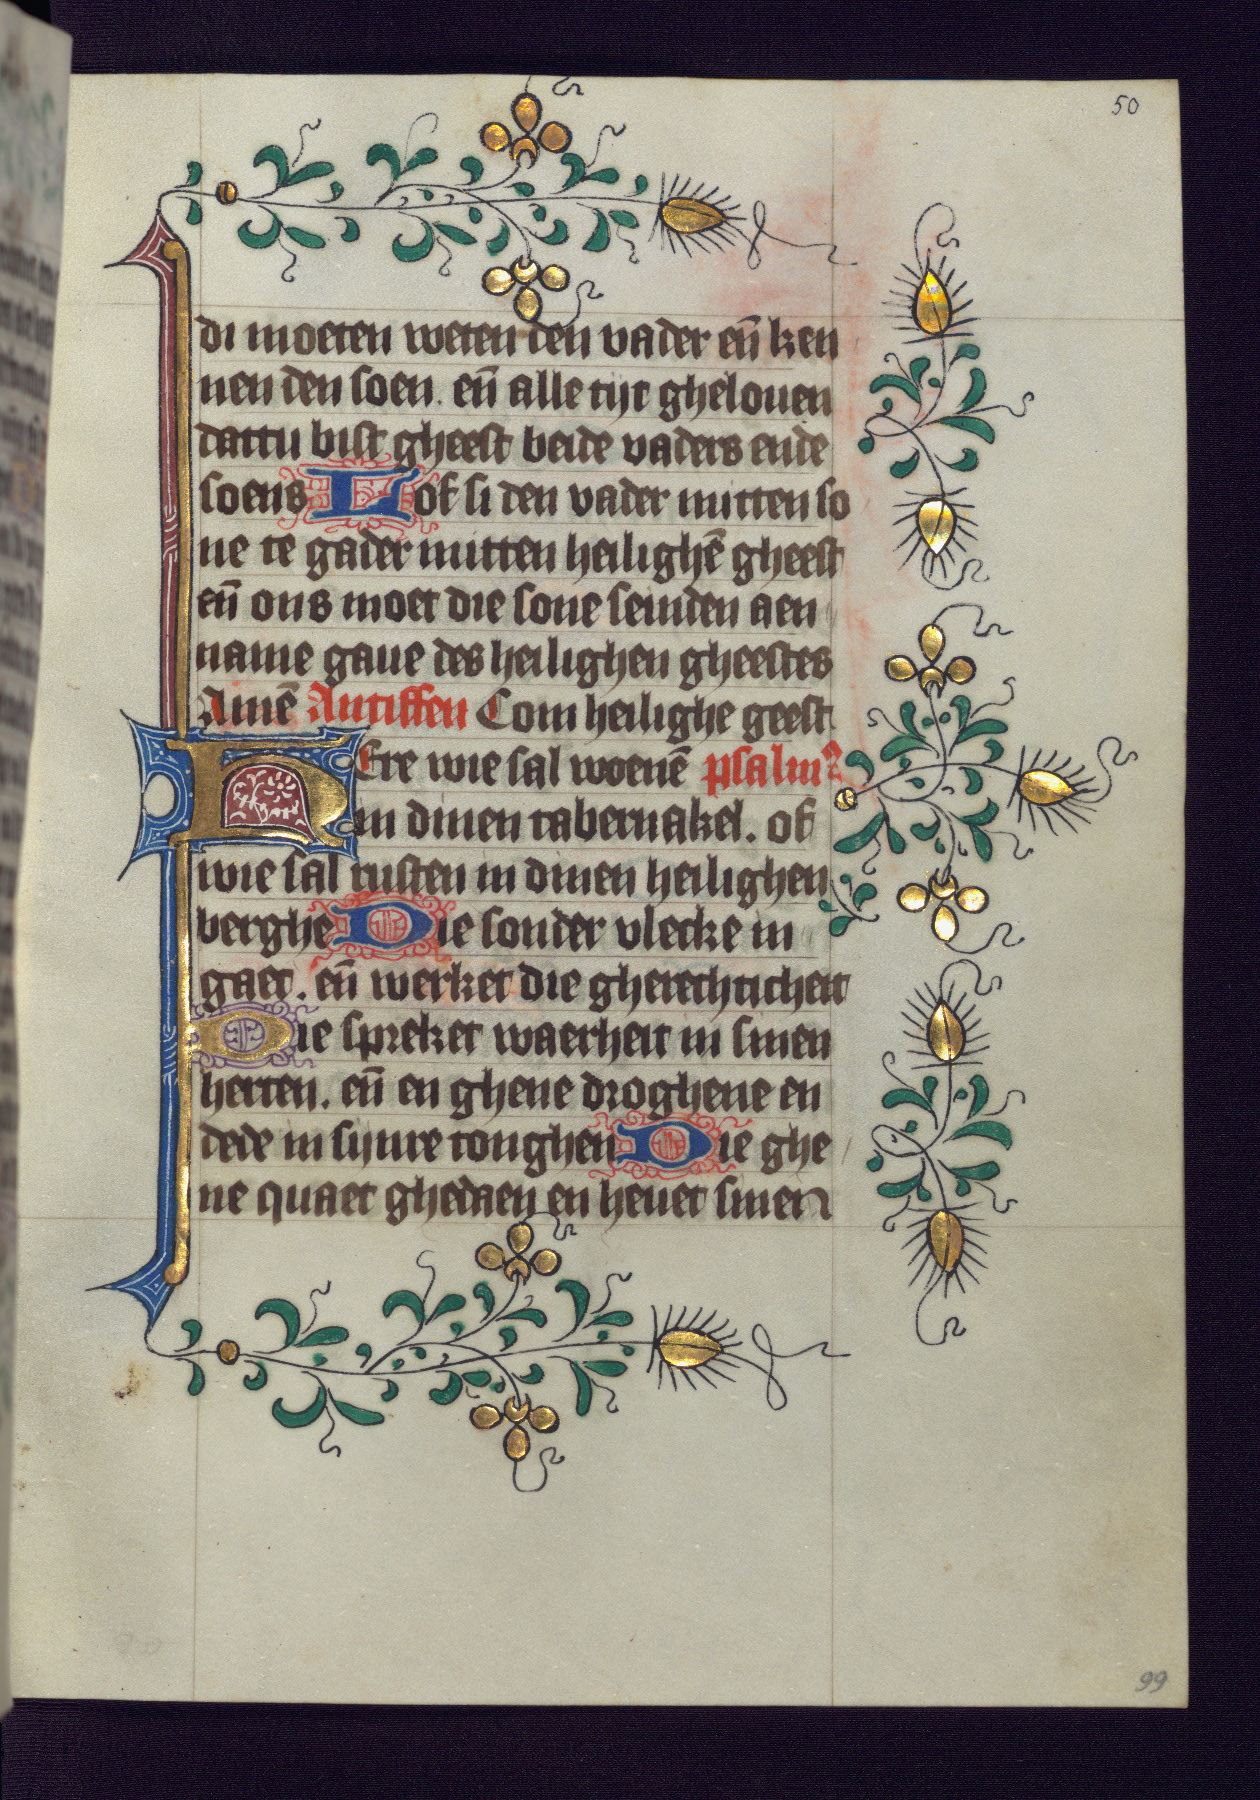 50
di moeten weten den vader en̄ ken
nen den soen. en̄ alle tijt ghelouen
dattu bist gheest beide vaders ende
soens Lof si den vader mitten so
ne te gader mitten heilighē gheest
en̄ ons moet die sone seinden aen
name gaue des heilighen gheestes
Amē Antiffen Com heilighe geest.
HEre wie sal woenē psalm
in dinen tabernakel. of
wie sal rusten in dinen heilighen
berghe Die sonder vlecke in
gaet. en̄ werket die gherechticheit
Die spreket waerheit in sinen
herten. en̄ en ghene droghene en
dede in sijnre tonghen Die ghe
ne quaet ghedaen en heuet sinen
99